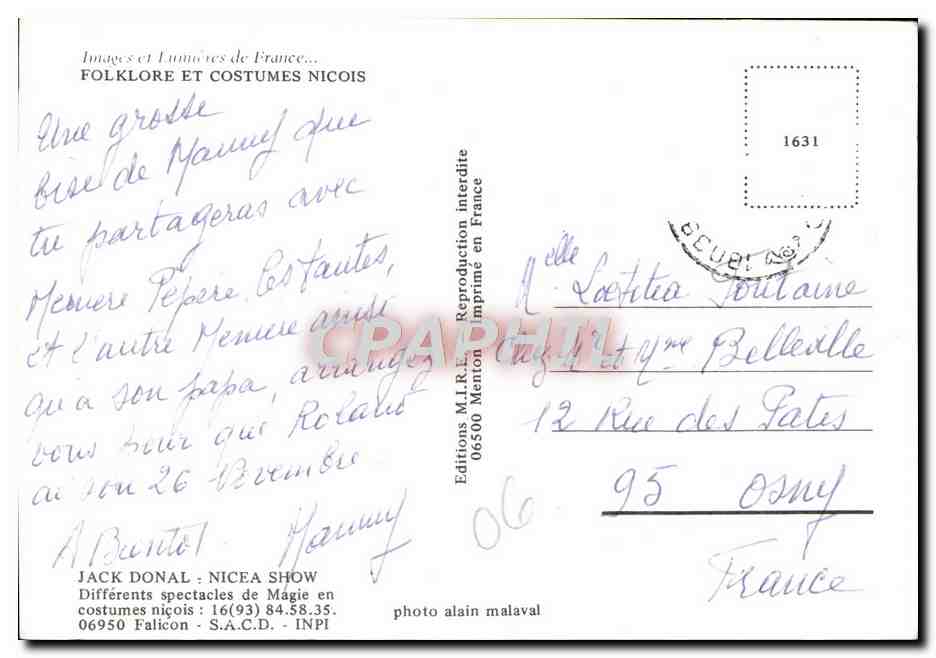 Images et Lumières de France...
FOLKLORE ET COSTUMES NICOIS
Une grosse
bise de Mammy que
tu partageras avec
Memere Pépère, les tantes,
et l'autre Memere ainsi
qu'a son papa, arrangez
vous pour que Roland
ai son 26 Novembre
A Bientot. Mammy
JACK DONAL : NICEA SHOW
Différents spectacles de Magie en
costumes niçois : 16(93) 84.58.35.
06950 Falicon - S.A.C.D. - INPI
photo alain malaval
Editions M.I.R.E. Reproduction interdite
06500 Menton Imprimé en France
1631
Melle Laetitia
Mr et Mme Belleville
12 Rue des Pates
95 Osny
France
06
CPARHTI